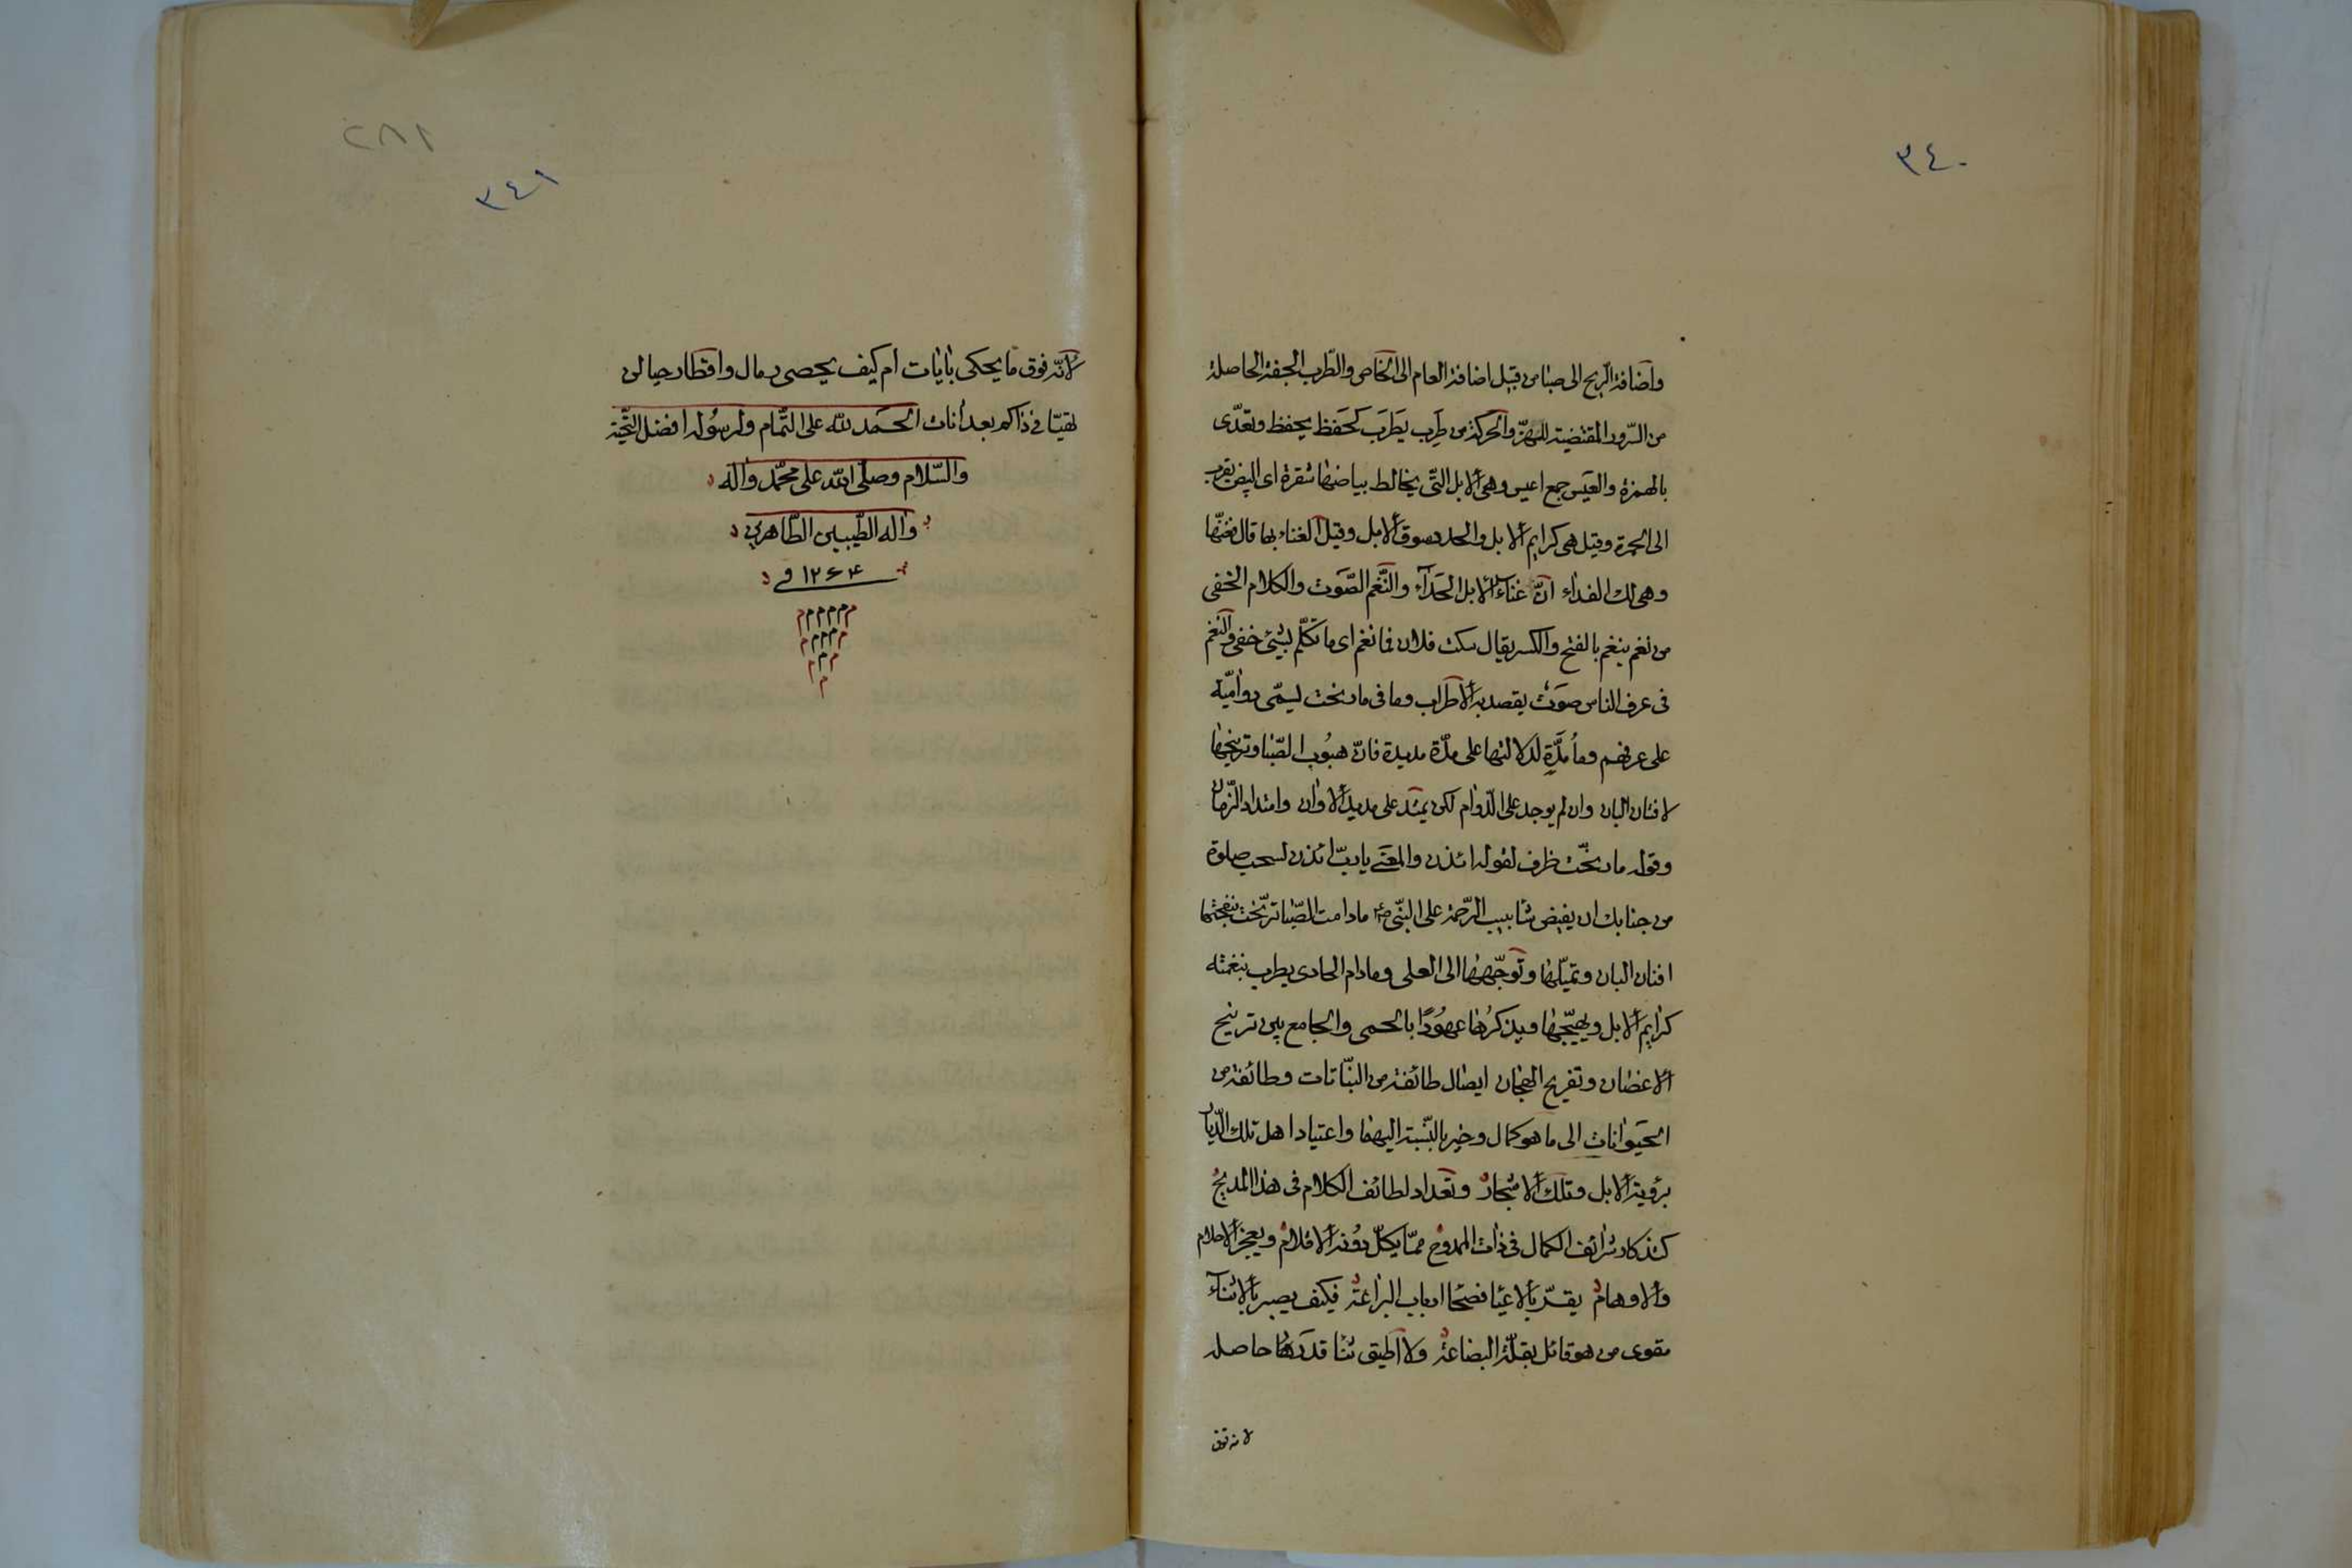 ٣٤٠
واضافة الريح الى صبا من قبيل اضافة العام الى الخاص والطّرب الخفة الحاصلة
من السّرور المقتضية للهزّ والحركة من طرِب يَطرَب كحَفِظ يحفظ وتعدّى
بالهمزة والعيس جمع اعيس وهى الابل التّى يخالط بياضها شقرة اى البيض يقرب
الى الحمرة وقيل هى كرايم الابل والحدو سوق الابل وقيل الغناء بها قال فغنّها
وهى لك الفداء انّ غناء الابل الحداء والنّغم الصّوت والكلام الخفى
من نغم ينغم بالفتح والكسر يقال سكت فلان فما نغم اى ما تكلّم بشئ خفى والنغم
فى عرف الناس صوت يقصد به الاطراب وما فى ما رنحت ليسمّى دواميّه
على عرفهم وما مدّة لدلالتها على مدّة مديدة فانّ هبُوب الصّبا وترنيحها
لافنان البان وان لم يوجد على الدّوام لكن يمتد على مديد الاوان وامتداد الزّمان
وقوله ما رنّحت ظرف لقوله ائذن والمعنى ياربّ ائذن لسحب صلوة
من جنابك ان يفيض شابيب الرّحمة على النّبى ص ما دامت الصّبا ترنّحت بنفحتها
افنان البان وتميّلها وتوجّهها الى العلى وما دام الحادى يطرب بنغمته
كرايم الابل ويهيّجها ويذكرها عهُودًا بالحمى والجامع بين ترنيح
الاغصان وتفريح الهجان ايصال طائفة من النّباتات وطائفة من
الحيوانات الى ما هو كمال وخير بالنّسبة اليهما واعتياد اهل تلك الدّيار
برؤية الابل وتلك الاشجار وتعداد لطائف الكلام فى هذا المديح
كتذكار شرائف الكمال فى ذات الممدوح ممّا يكلّ دونه الاقلام ويعجز الاحلام
والاوهام يقرّ بالاعيا فصحا ارباب البراعة فكيف يصبر بالاثناء
مقوى من هو قائل بقلّة البضاعة ولا اطيق ثنا قدرها حاصله
لانه فوق
٢٨١
٣٤١
لانّه فوق ما يحكى بايات ام كيف يحصى رمال واقطار حيا لن
لقيّا فى ذاكم بعد أنات الحَمد للّه على التّمام ولرسُوله افضل التّحيّة
والسّلام وصلّى اللّه على محمّد وآله
وآله الطّيبين الطّاهرين
١٢٦٤ فى
م م م م م م
م م م م م
م م م
م